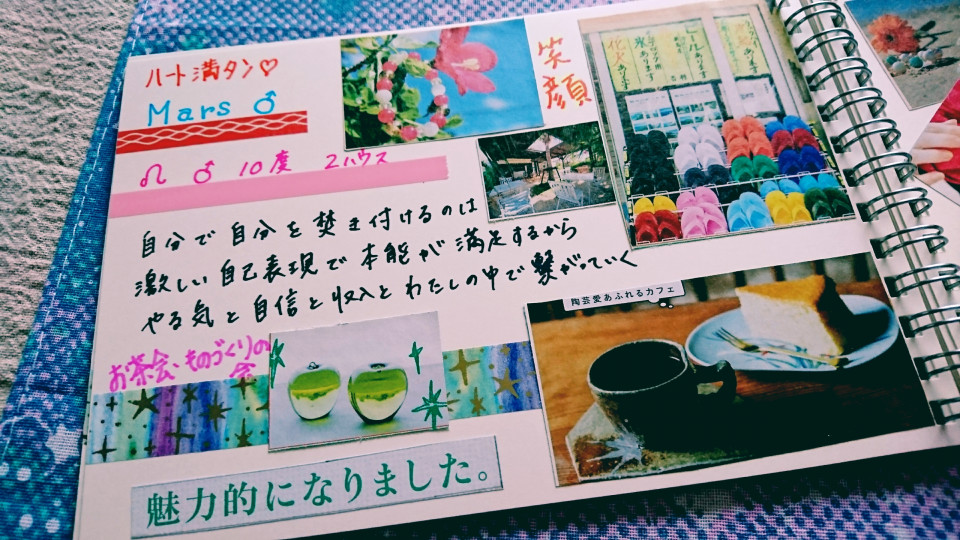 ハート満タン♡
Mars ♂
笑顔
♌ ♂ 10度 2ハウス
自分で自分を焚き付けるのは
激しい自己表現で本能が満足するから
やる気と自信と収入とわたしの中で繋がっていく
お茶会、ものづくりの
会
陶芸愛あふれるカフェ
魅力的になりました。